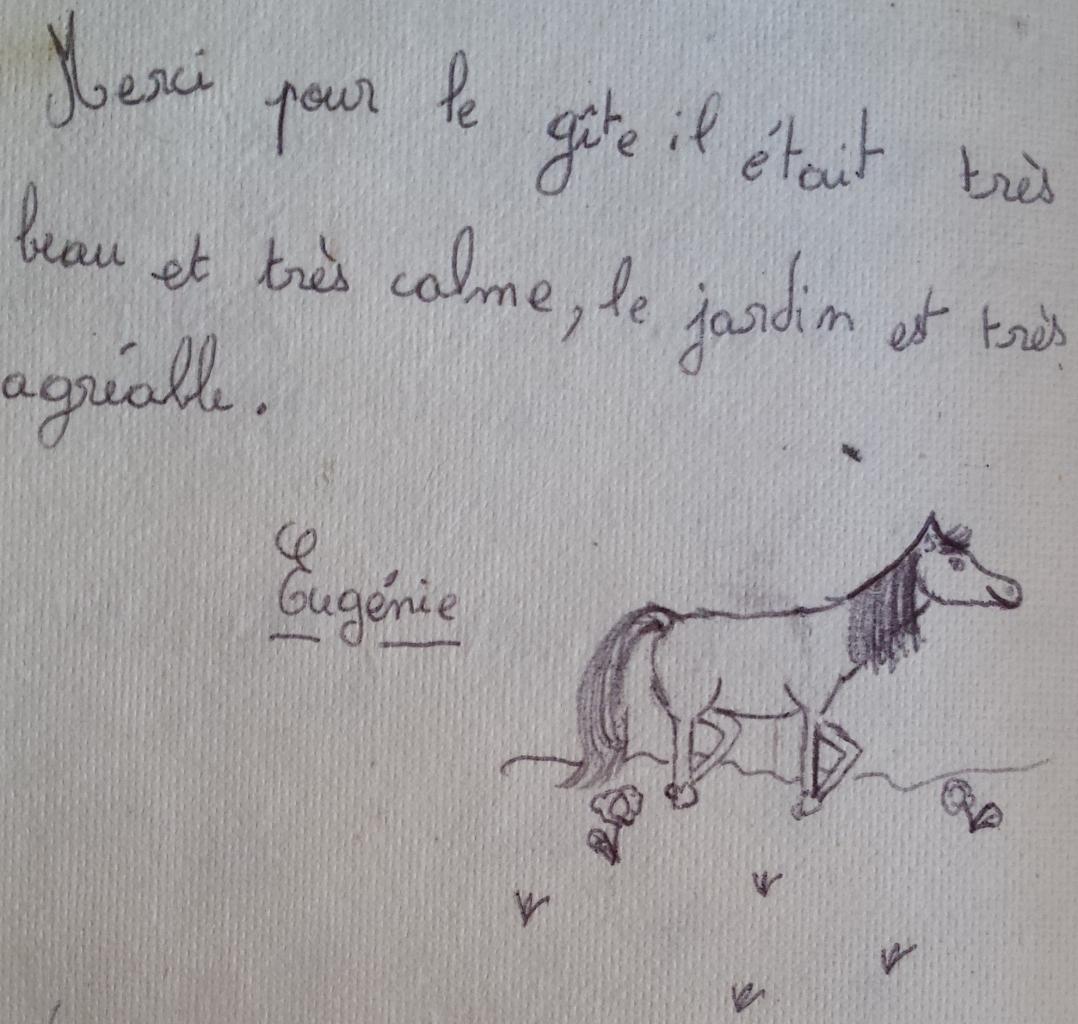 Merci pour le gîte il était très
beau et très calme, le jardin est très
agréable.
Eugénie